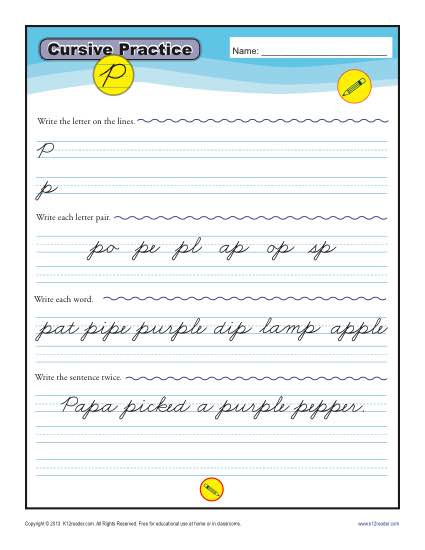 Cursive Practice
Name:
P
Write the letter on the lines.
P
p
Write each letter pair.
po pe pl ap op sp
Write each word.
pat pipe purple dip lamp apple
Write the sentence twice.
Papa picked a purple pepper.
Copyright © 2013 K12reader.com. All Rights Reserved. Free for educational use at home or in classrooms.
www.k12reader.com